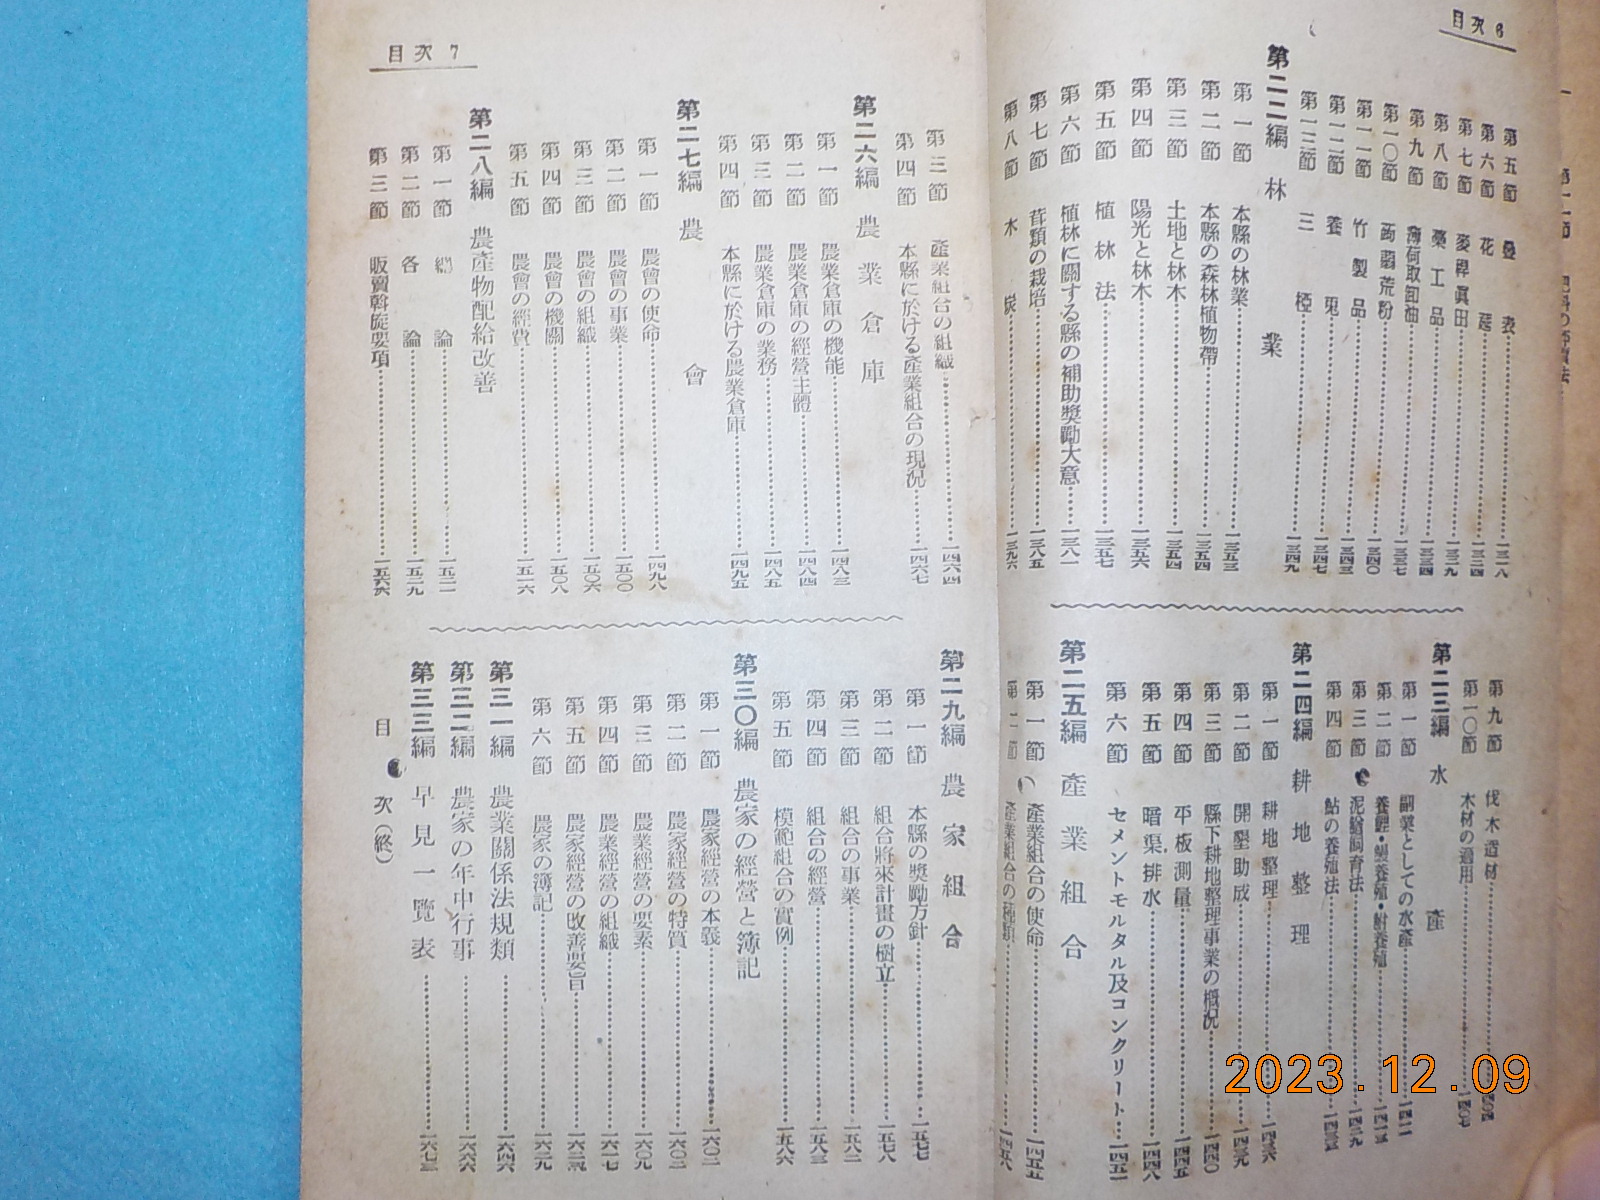 目次 6
第五節 疊表……一三一八
第六節 花莚……一三二四
第七節 麥稈眞田……一三二九
第八節 藁工品……一三三四
第九節 薄荷取卸油……一三三七
第一〇節 蒟蒻荒粉……一三四〇
第一一節 竹製品……一三四三
第一二節 養兎……一三四七
第一三節 三椏……一三四九
第二二編 林業
第一節 本縣の林業……一三五三
第二節 本縣の森林植物帶……一三五四
第三節 土地と林木……一三五四
第四節 陽光と林木……一三五六
第五節 植林法……一三五七
第六節 植林に關する縣の補助奬勵大意……一三八一
第七節 茸類の栽培……一三八五
第八節 木炭……一三九六
第九節 伐木造材
第一〇節 木材の適用……一四〇七
第二三編 水産
第一節 副業としての水產……一四一一
第二節 養鯉・鰻養殖・鮒養殖……一四一五
第三節 泥鰌飼育法……一四二九
第四節 鮎の養殖法……一四三五
第二四編 耕地整理
第一節 耕地整理……一四三六
第二節 開墾助成……一四三九
第三節 縣下耕地整理事業の概況……一四四〇
第四節 平板測量……一四四五
第五節 暗渠排水……一四四八
第六節 セメントモルタル及コンクリート……一四五一
第二五編 產業組合
第一節 產業組合の使命……一四五五
第二節 產業組合の種類……一四五八
目次 7
第三節 產業組合の組織……一四六四
第四節 本縣に於ける產業組合の現況……一四六七
第二六編 農業倉庫
第一節 農業倉庫の機能……一四八三
第二節 農業倉庫の經營主體……一四八四
第三節 農業倉庫の業務……一四八五
第四節 本縣に於ける農業倉庫……一四九五
第二七編 農會
第一節 農會の使命……一四九八
第二節 農會の事業……一五〇〇
第三節 農會の組織……一五〇六
第四節 農會の機關……一五〇八
第五節 農會の經費……一五一六
第二八編 農產物配給改善
第一節 總論……一五二一
第二節 各論……一五二九
第三節 販賣斡旋要項……一五六六
第二九編 農家組合
第一節 本縣の奬勵方針……一五七七
第二節 組合將來計畫の樹立……一五七八
第三節 組合の事業……一五八二
第四節 組合の經營……一五八三
第五節 模範組合の實例……一五八六
第三〇編 農家の經營と簿記
第一節 農家經營の本義……一六〇二
第二節 農家經營の特質……一六〇三
第三節 農業經營の要素……一六〇九
第四節 農業經營の組織……一六一七
第五節 農家經營の改善要旨
第六節 農家の簿記……一六二九
第三一編 農業關係法規類……一六四六
第三二編 農家の年中行事……一六六六
第三三編 早見一覽表……一六七三
目次(終)
2023.12.09